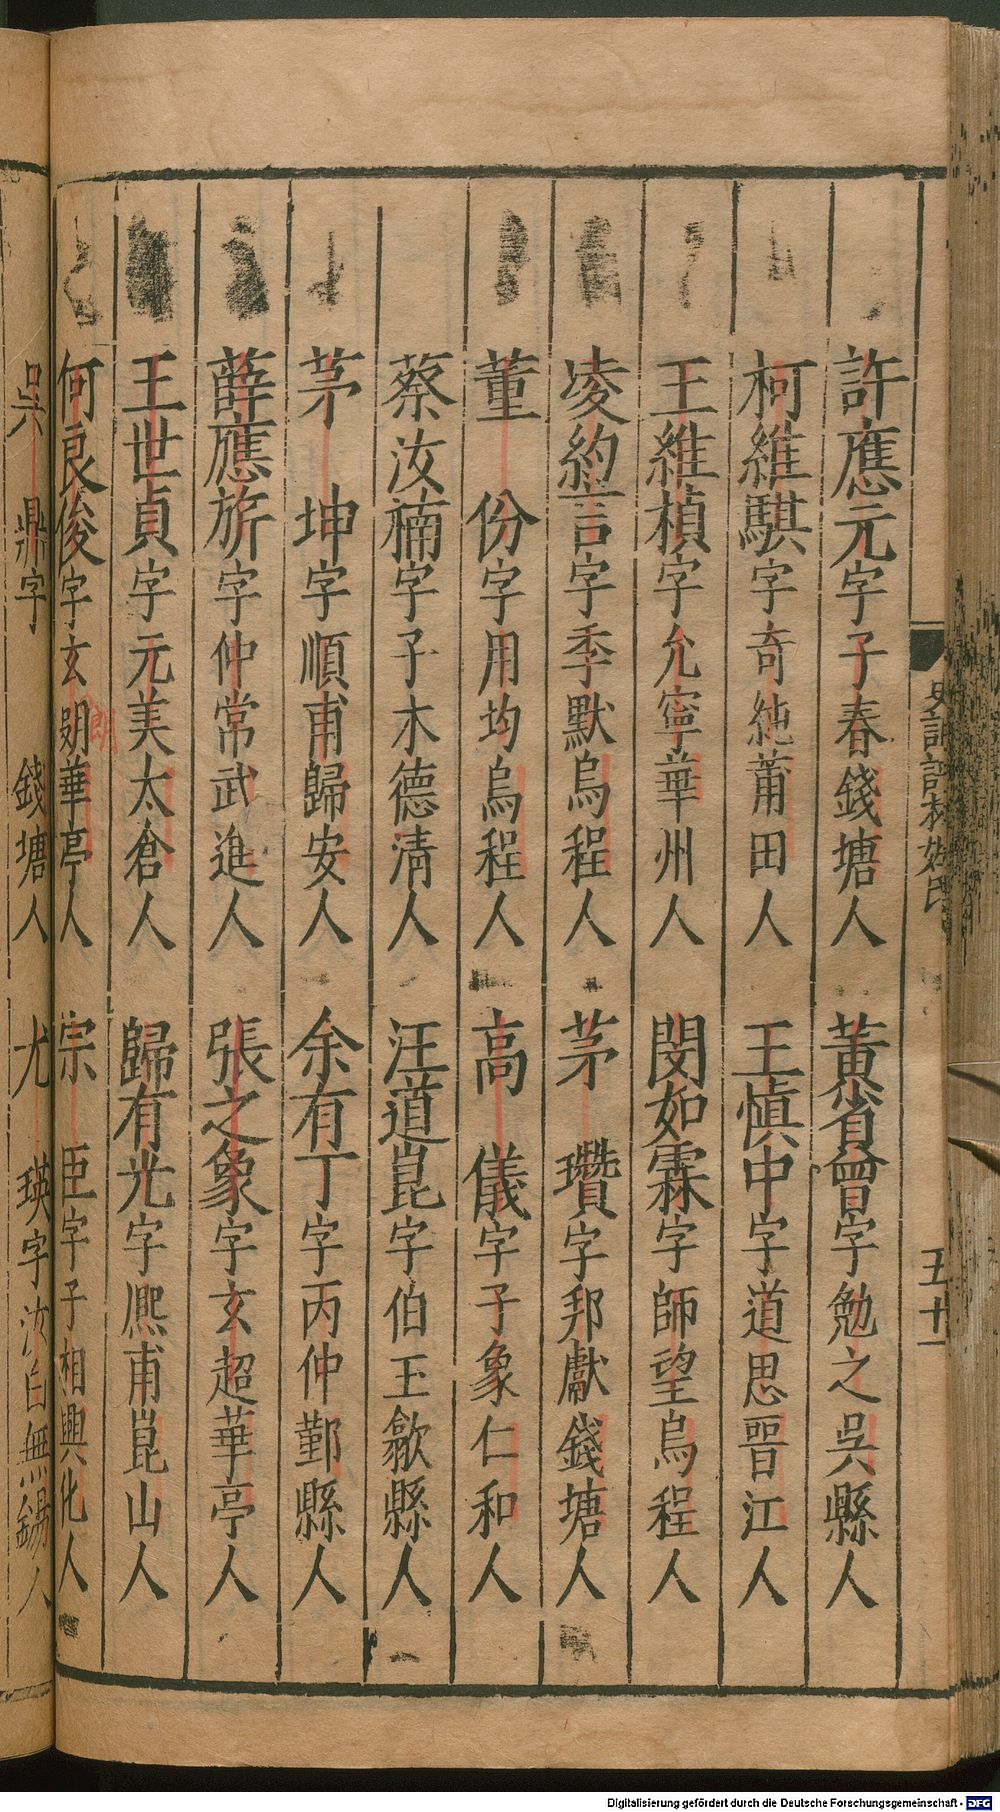 許應元字子春錢塘人 黃省曾字勉之吳縣人
柯維騏字奇純莆田人 王慎中字道思晉江人
王維楨字允寧華州人 閔如霖字師望烏程人
凌約言字季默烏程人 茅瓚字邦獻錢塘人
董份字用均烏程人 高儀字子象仁和人
蔡汝楠字子木德清人 汪道崑字伯玉歙縣人
茅坤字順甫歸安人 余有丁字丙仲鄞縣人
薛應旂字仲常武進人 張之象字玄超華亭人
王世貞字元美太倉人 歸有光字熈甫崑山人
何良俊字玄朗華亭人 宗臣字子相興化人
朗
吳鼎字 錢塘人 尤瑛字汝白無錫人
姓氏
五十一
Digitalisierung gefördert durch die Deutsche Forschungsgemeinschaft - DFG